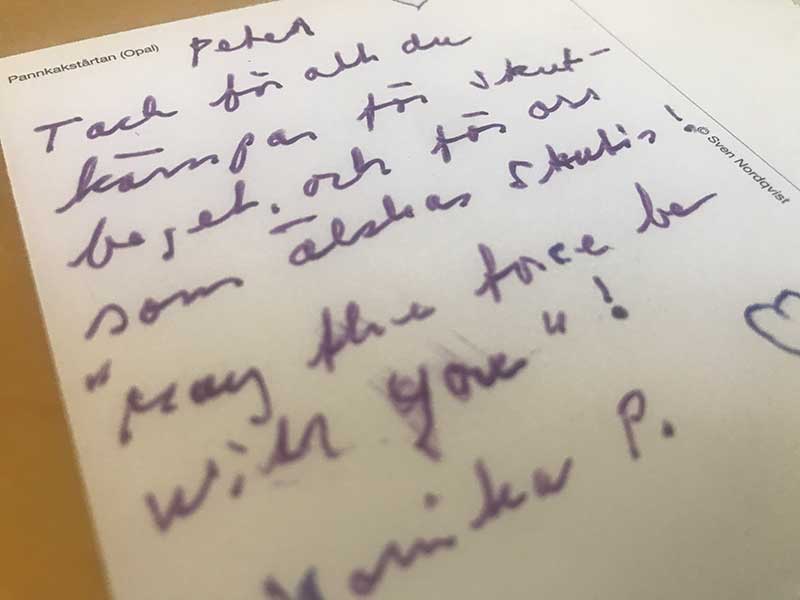 Pannkakstårtan (Opal)
Peter
Tack för allt du
kämpar för skut-
beget. och för oss
som älskar skutis!
© Sven Nordqvist
"May the force be
with you"!
P.